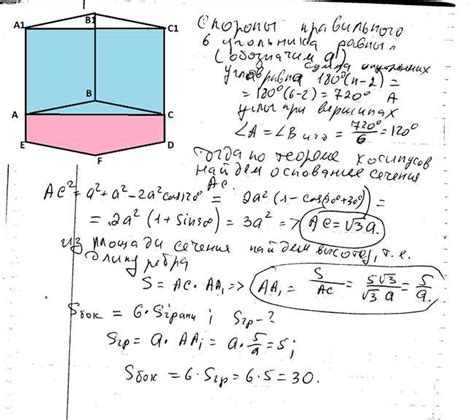 A1
B1
C1
B
A
C
E
F
D
Стороны правильного
6 угольника равны
(обозначим a)
сумма
углов равна 180°(n-2) =
= 180°(6-2) = 720°
углы при вершинах A
∠A = ∠B и т.д = 720°/6 = 120°
Тогда по теореме косинусов
найдем основание сечения
AC
AC² = a² + a² - 2a² cos120° = 2a² (1 - cos(90°+30°) =
= 2a² (1 + sin30°) = 3a² => AC = √3 a.
из площади сечения найдем высоту, т.е.
длину ребра
S = AC · AA₁ => AA₁ = S/AC = 5√3/√3 a = 5/a.
Sбок = 6 · Sграни ; Sгр - ?
Sгр = a · AA₁ = a · 5/a = 5;
Sбок = 6 · Sгр = 6 · 5 = 30.